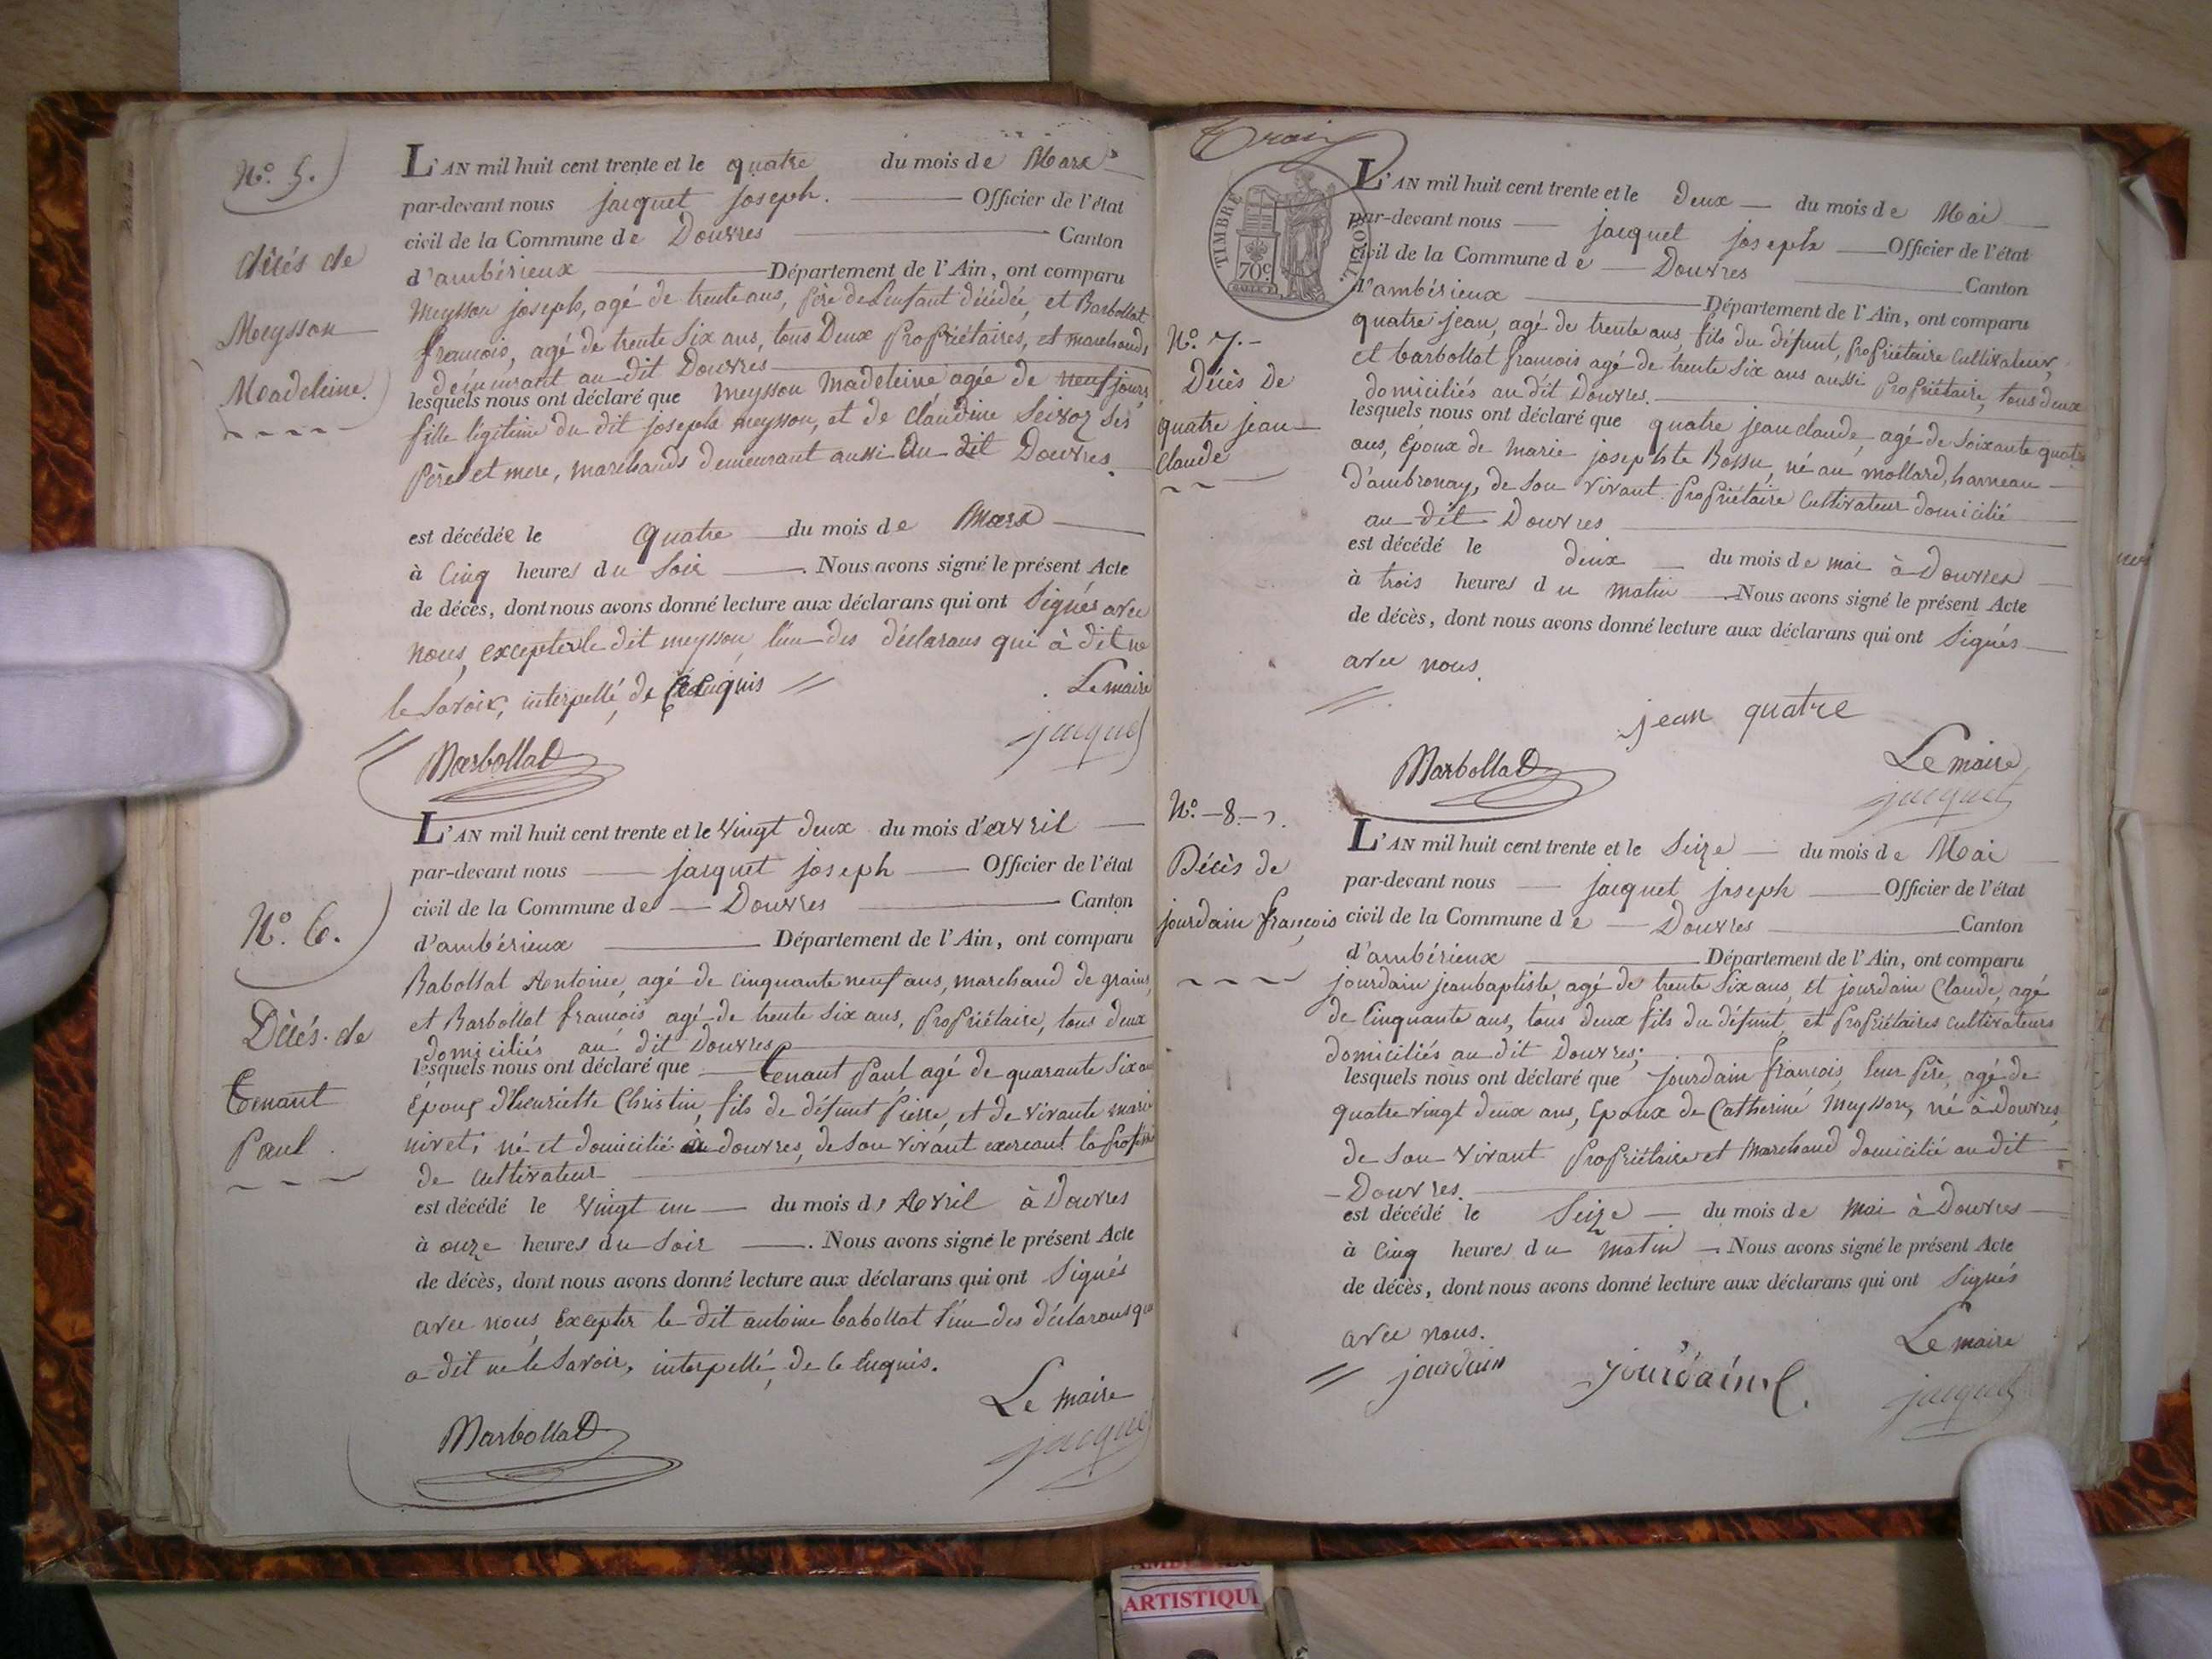 N.º 5.
décés de
Meysson
Madeleine.
L'AN mil huit cent trente et le quatre du mois de Mars
par-devant nous jacquet joseph. Officier de l'état
civil de la Commune de Douvres Canton
d'ambérieux Département de l'Ain, ont comparu
Meysson joseph, agé de trente ans, père de l'enfant décédée, et Barbollat
françois, agé de trente Six ans, tous Deux propriétaires, et marchands
demeurant au dit Douvres
lesquels nous ont déclaré que meysson Madeleine agée de neuf jours
fille légitime du dit joseph meysson, et de Claudine Seivoz Ses
père et mere, marchands demeurant aussi Au dit Douvres.
est décédée le Quatre du mois de Mars
à Cinq heures du Soir . Nous avons signé le présent Acte
de décès, dont nous avons donné lecture aux déclarans qui ont Signés avec
nous, excepter le dit meysson l'un des déclarans qui à dit ne
le Savoir, interpellé, de ce Enquis
Le maire
Barbollat
jacquet
N.º 6.
Décés de
Tenant
Paul.
L'AN mil huit cent trente et le Vingt deux du mois d'avril
par-devant nous jacquet joseph Officier de l'état
civil de la Commune de Douvres Canton
d'ambérieux Département de l'Ain, ont comparu
Babollat Antoine, agé de Cinquante neuf ans, marchand de grains,
et Barbollat françois agé de trente Six ans, propriétaire, tous deux
domiciliés au dit Douvres
lesquels nous ont déclaré que Tenant Paul agé de quarante Six ans
Epoux d'henriette Christin, fils de défunt Pierre, et de vivante marie
nivet, né et domicilié à douvres, de Son vivant exercant la profession
de Cultivateur
est décédé le Vingt un du mois d' Avril à Douvres
à onze heures du Soir . Nous avons signé le présent Acte
de décès, dont nous avons donné lecture aux déclarans qui ont Signés
avec nous, Excepter le dit antoine babollat l'un des déclarans qui
a dit ne le Savoir, interpellé, de Ce Enquis.
Le maire
Barbollat
jacquet
Trois
TIMBRE ROYAL
70c
N.º 7.
Décès De
quatre jean
Claude
L'AN mil huit cent trente et le Deux du mois de Mai
par-devant nous jacquet joseph Officier de l'état
civil de la Commune de Douvres Canton
d'ambérieux Département de l'Ain, ont comparu
quatre jean, agé de trente ans, fils du défunt, propriétaire Cultivateur,
et barbollat françois agé de trente Six ans aussi propriétaire, tous deux
domiciliés au dit Douvres.
lesquels nous ont déclaré que quatre jean claude, agé de Soixante quatre
ans, Epoux de marie josephte Bossu, né au mollard, hameau
d'ambronay, de Son vivant propriétaire Cultivateur domicilié
au dit Douvres
est décédé le deux du mois de mai à Douvres
à trois heures du matin Nous avons signé le présent Acte
de décès, dont nous avons donné lecture aux déclarans qui ont Signés
avec nous.
jean quatre
Barbollat
Le maire
jacquet
N.º 8
Décès de
jourdain françois
L'AN mil huit cent trente et le Seize du mois de Mai
par-devant nous jacquet joseph Officier de l'état
civil de la Commune de Douvres Canton
d'ambérieux Département de l'Ain, ont comparu
jourdain jeanbaptiste, agé de trente Six ans, Et jourdain Claude, agé
de Cinquante ans, tous deux fils du défunt, et propriétaires cultivateurs
domiciliés au dit Douvres;
lesquels nous ont déclaré que jourdain françois, leur père, agé de
quatre vingt deux ans, Epoux de Catherine Meysson, né à Douvres,
de Son vivant propriétaire et Marchand domicilié au dit
Douvres.
est décédé le Seize du mois de mai à Douvres
à Cinq heures du matin Nous avons signé le présent Acte
de décès, dont nous avons donné lecture aux déclarans qui ont Signés
avec nous.
Le maire
jourdain jourdain C.
jacquet
ARTISTIQU